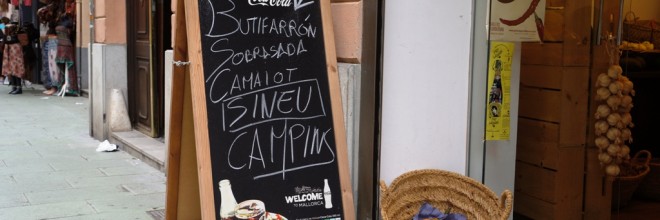 Coca-Cola
BUTIFARRÓN
SOBRASADA
CAMAIOT
SINEU
CAMPINS
WELCOME
TO MALLORCA